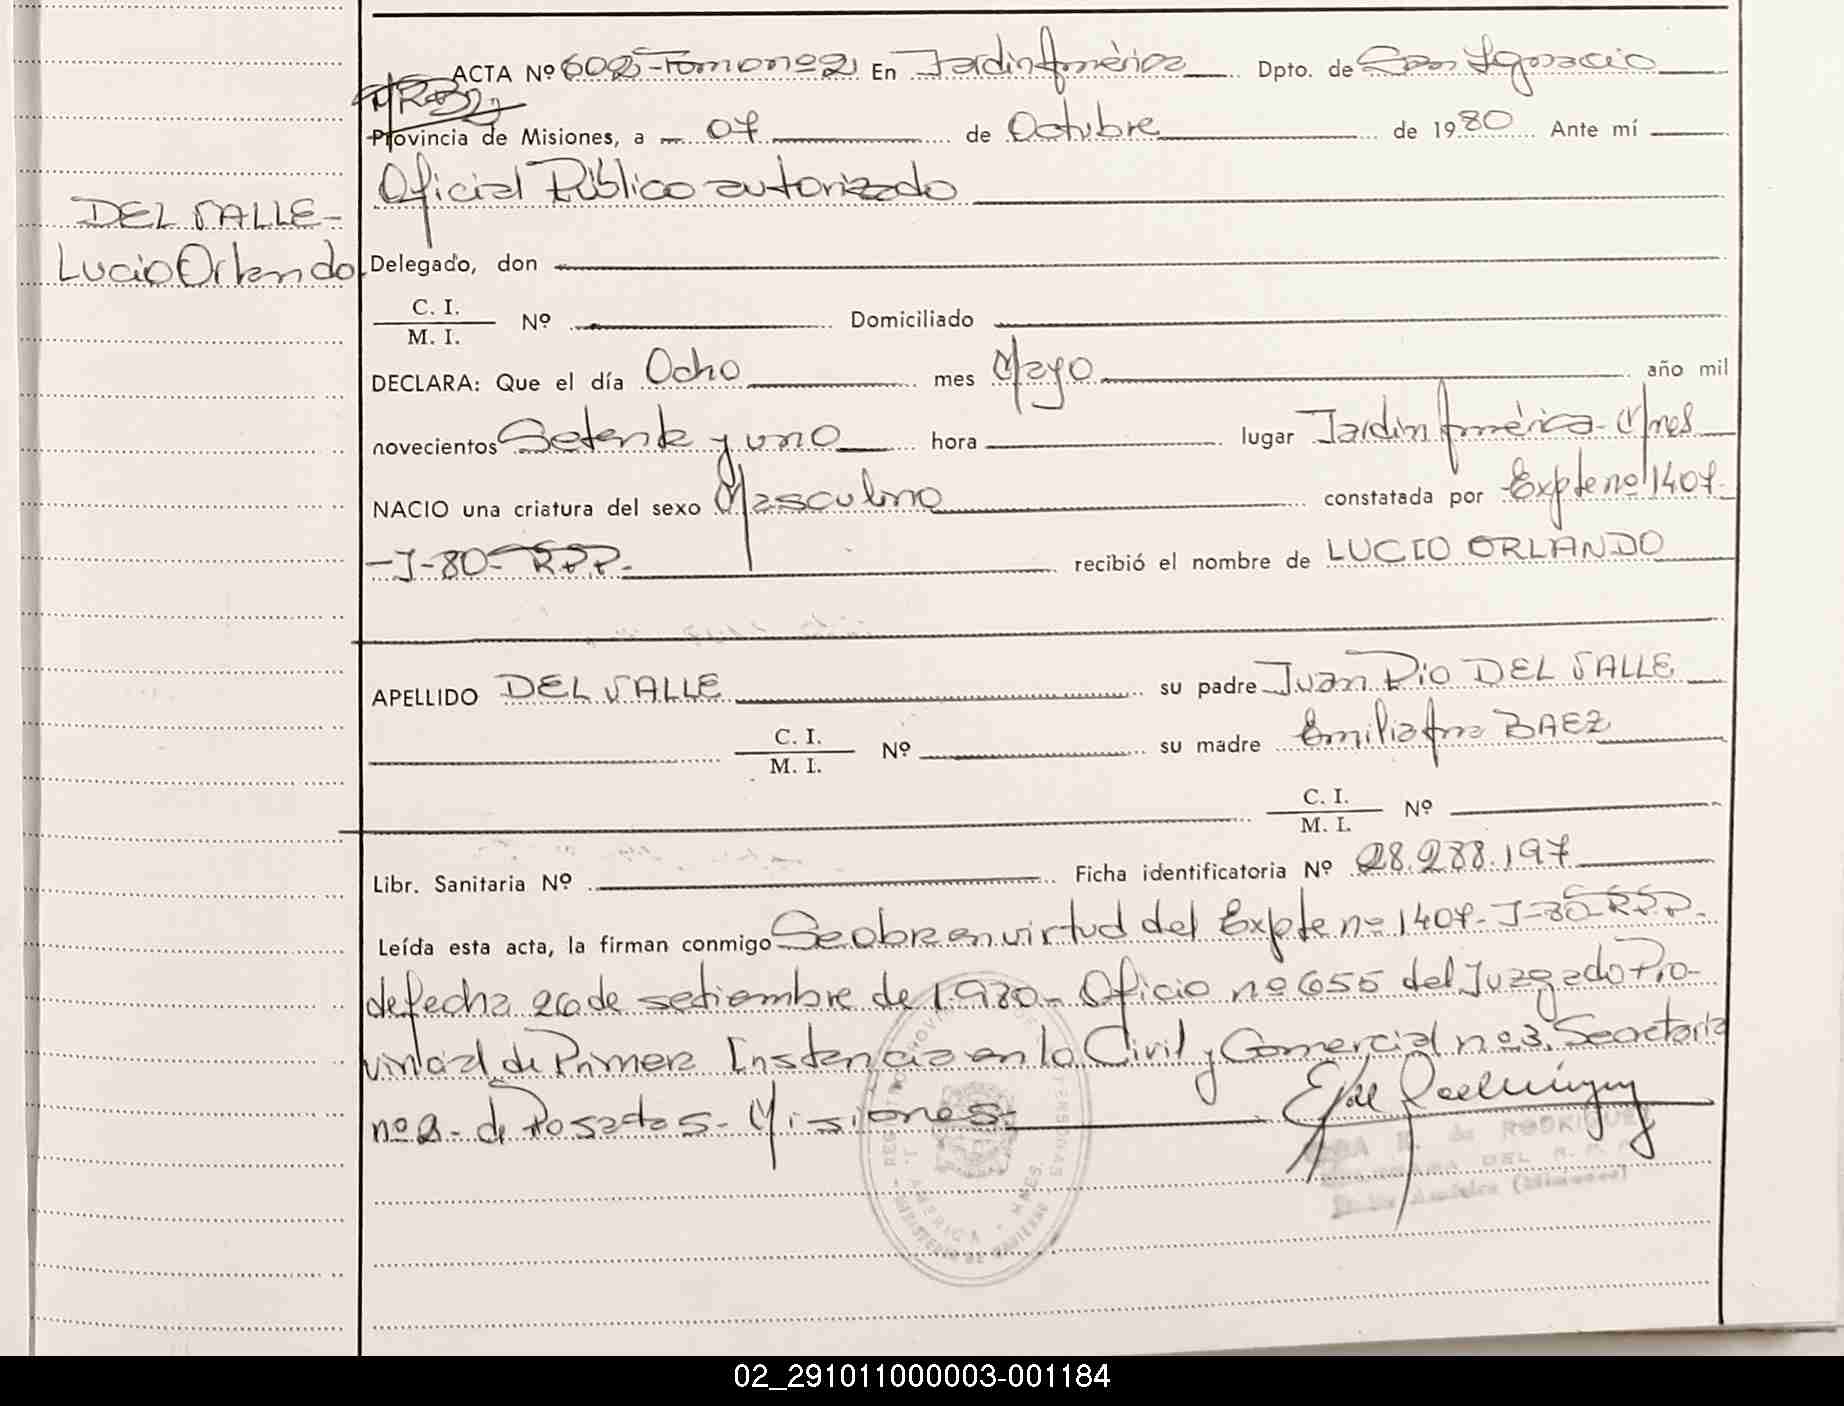 ACTA Nº 602 - Tomo nº 2 En Jardín América Dpto. de San Ignacio
Provincia de Misiones, a 07 de Octubre de 1980 Ante mí
Oficial Público autorizado
DEL VALLE-
Lucio Orlando
Delegado, don
C. I.
M. I.
Nº Domiciliado
DECLARA: Que el día Ocho mes Mayo año mil
novecientos Setenta y uno hora lugar Jardín América - Mnes
NACIO una criatura del sexo Masculino constatada por Expte nº 1407-
-J-80- RPP.- recibió el nombre de LUCIO ORLANDO
APELLIDO DEL VALLE su padre Juan Pio DEL VALLE
C. I.
M. I.
Nº su madre Emilia Ana BAEZ
C. I.
M. I.
Nº
Libr. Sanitaria Nº Ficha identificatoria Nº 28.288.197
Leída esta acta, la firman conmigo Se obra en virtud del Expte nº 1407- J-80-RPP.
de fecha 26 de setiembre de 1.980.- Oficio nº 655 del Juzgado Pro-
vincial de Primera Instancia en lo Civil y Comercial nº 3. Secretaria
nº 2- de Posadas- Misiones.-
REGISTRO PROVINCIAL DE PERSONAS
J. AMERICA - MNES.
MINISTERIO DE GOBIERNO
de RODRIGUEZ
DEL R. P. P.
América (Misiones)
02_291011000003-001184